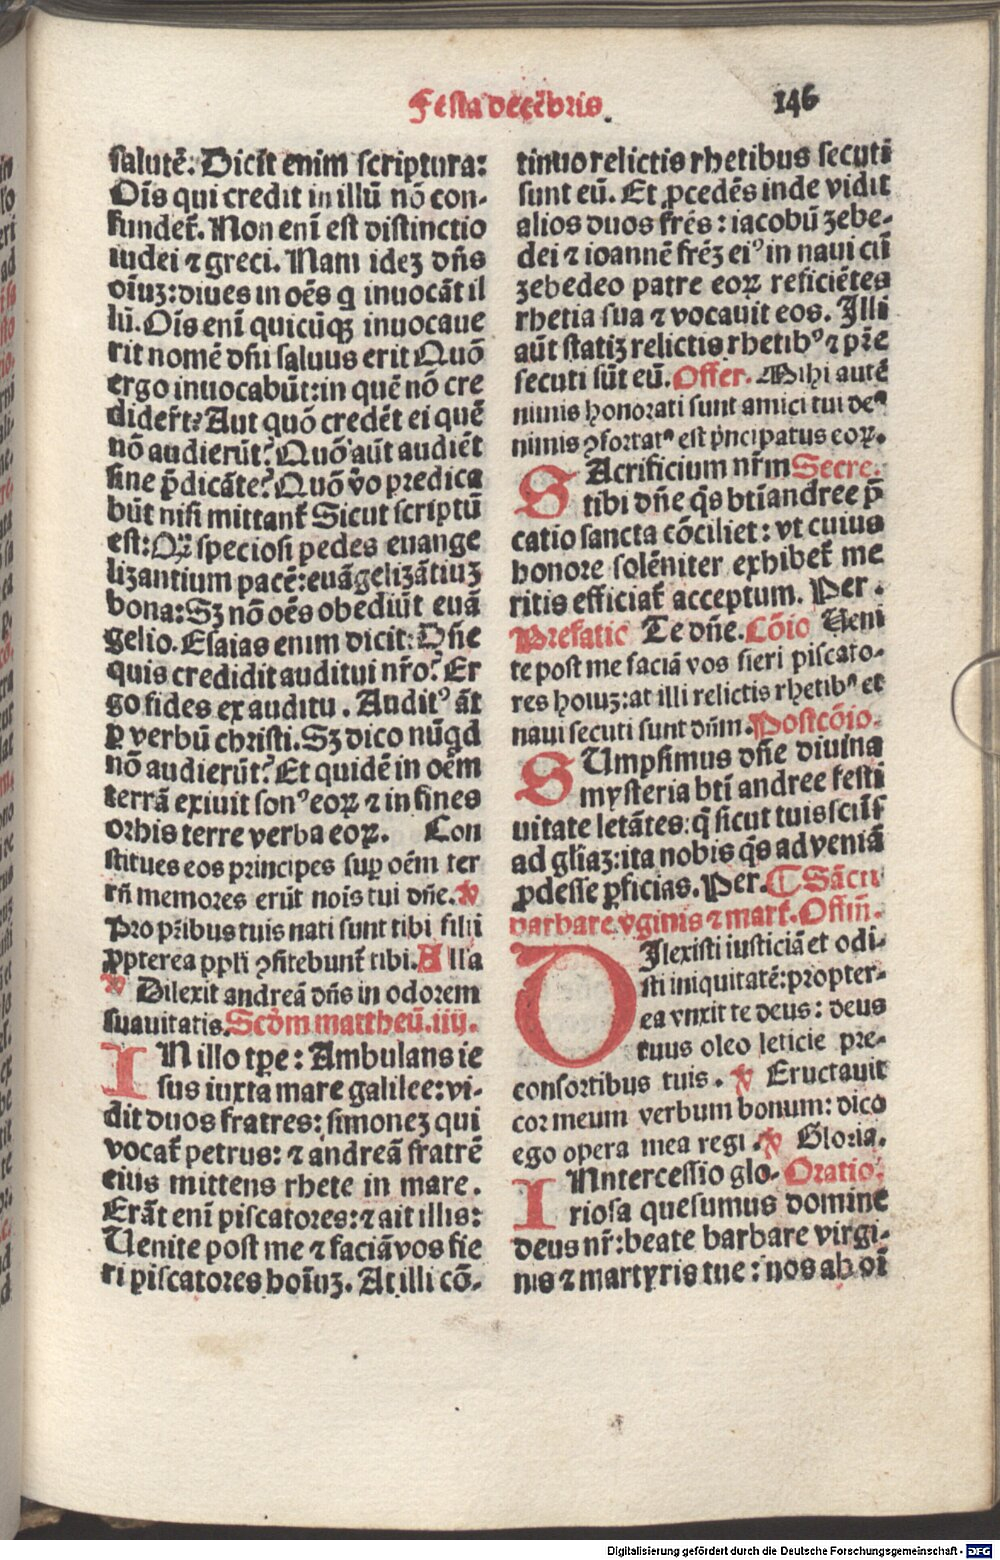 Festa decēbris.
146
salutē. Dicit enim scriptura:
Oīs qui credit in illū nō con-
fundet᷑. Non enī est distinctio
iudei ⁊ greci. Nam idez dn̄s
oīuz: diues in oēs q inuocāt il
lū. Oīs enī quicūqꝫ inuocaue
rit nomē dn̄i saluus erit Quō
ergo inuocabūt: in quē nō cre
dider̄t? Aut quō credēt ei quē
nō audierūt? Quō aūt audiēt
sine p̄dicāte? Quō v̄o predica
būt nisi mittant᷑ Sicut scriptū
est: Qꝫ speciosi pedes euange
lizantium pacē: euāgelizātiuꝫ
bona: Sꝫ nō oēs obediūt euā
gelio. Esaias enim dicit: Dn̄e
quis credidit auditui nr̄o? Er
go fides ex auditu. Auditꝰ āt
ꝑ verbū christi. Sꝫ dico nūqd
nō audierūt? Et quidē in oēm
terrā exiuit sonꝰ eoꝝ ⁊ in fines
orbis terre verba eoꝝ. Con
stitues eos principes sup oēm ter
rā memores erūt nois tui dn̄e. ℣
Pro pr̄ibus tuis nati sunt tibi filii
ꝓpterea ppli ꝯfitebunt᷑ tibi. Alla
℣ Dilexit andreā dn̄s in odorem
suauitatis. Scd̄m mattheū. iiij.
IN illo tp̄e: Ambulans ie
sus iuxta mare galilee: vi-
dit duos fratres: simonez qui
vocat᷑ petrus: ⁊ andreā fratrē
eius mittens rhete in mare.
Erāt enī piscatores: ⁊ ait illis:
Uenite post me ⁊ faciā vos fie
ri piscatores hoīuꝫ. At illi cō-
tinuo relictis rhetibus secuti
sunt eū. Et ꝓcedēs inde vidit
alios duos fr̄es: iacobū zebe-
dei ⁊ ioannē fr̄eꝫ eiꝰ in naui cū
zebedeo patre eoꝝ reficiētes
rhetia sua ⁊ vocauit eos. Illi
aūt statiꝫ relictis rhetibꝰ ⁊ pr̄e
secuti sūt eū. Offer. Mihi autē
nimis honorati sunt amici tui deꝰ
nimis ꝯfortatꝰ est p̄ncipatus eoꝝ.
SAcrificium nr̄m Secre.
tibi dn̄e q̄s btī andree p̄
catio sancta cōciliet: vt cuius
honore solēniter exhibet᷑ me
ritis efficiat᷑ acceptum. Per.
Prefatio Te dn̄e. Cōio Ueni
te post me faciā vos fieri piscato-
res hoīuꝫ: at illi relictis rhetibꝰ et
naui secuti sunt dn̄m. Postcōio.
SUmpsimus dn̄e diuina
mysteria btī andree festi
uitate letātes: q̄ sicut tuis scīs
ad gliaꝫ: ita nobis q̄s ad veniā
ꝓdesse ꝑficias. Per. ¶ Sācte
barbare vginis ⁊ mart᷑. Offm̄.
DIlexisti iusticiā et odi-
sti iniquitatē: propter-
ea vnxit te deus: deus
tuus oleo leticie pre-
consortibus tuis. ℣ Eructauit
cor meum verbum bonum: dico
ego opera mea regi. ℣ Gloria.
INntercessio glo- Oratio.
riosa quesumus domine
deus nr̄: beate barbare virgi-
nis ⁊ martyris tue: nos ab oī
Digitalisierung gefördert durch die Deutsche Forschungsgemeinschaft - DFG